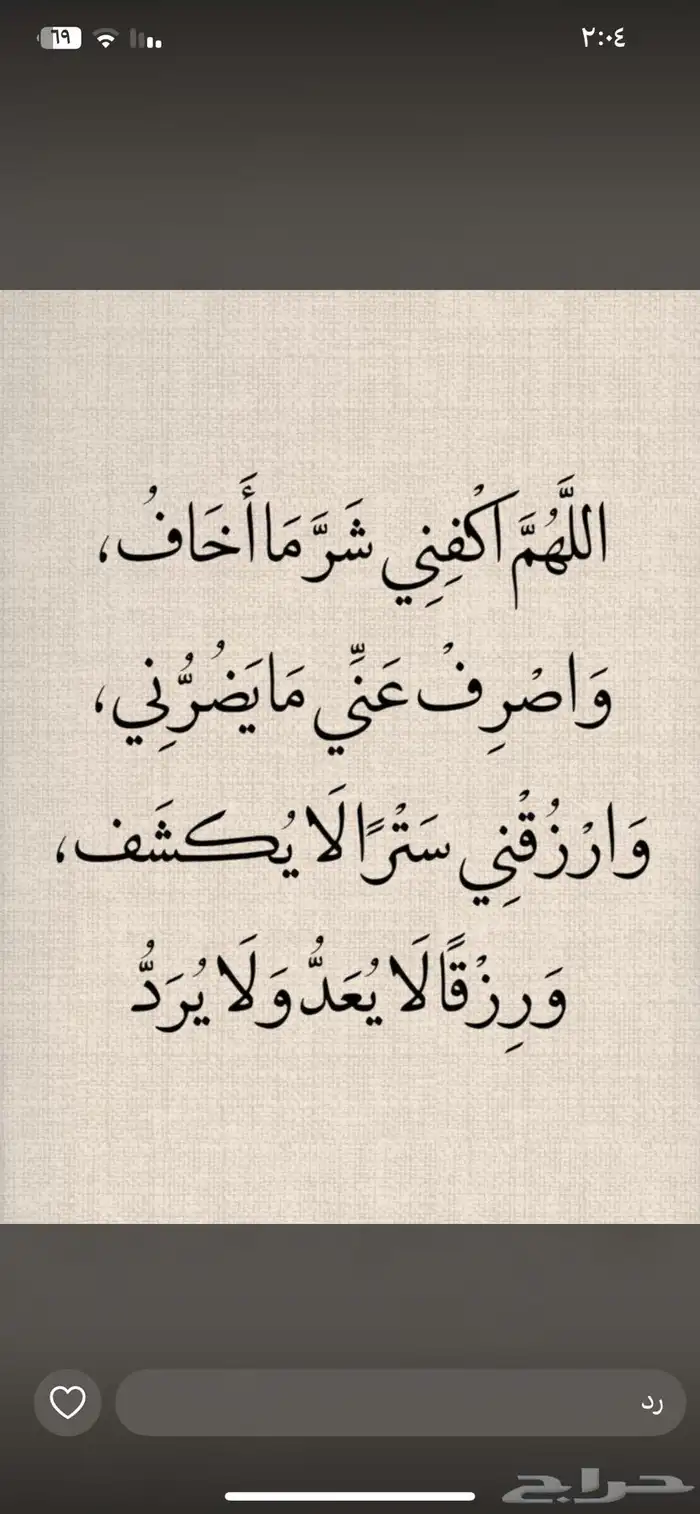 ٢:٠٤
٦٩
اللَّهُمَّ اكْفِنِي شَرَّ مَا أَخَافُ،
وَاصْرِفْ عَنِّي مَا يَضُرُّنِي،
وَارْزُقْنِي سَتْرًا لَا يُكشَف،
وَرِزْقًا لَا يُعَدُّ وَلَا يُرَدُّ
رد
حراج